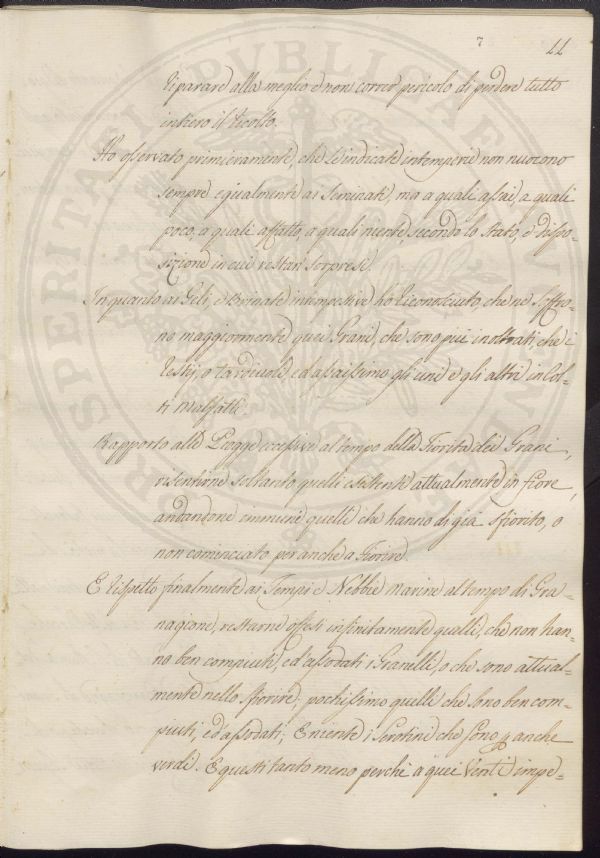 7 11
riparare alla meglio e non correr pericolo di perdere tutto
intiero il ricolto.
Ho osservato primieramente, che le indicate intemperie non nuocono
sempre egualmente ai Seminati, ma a quali assai, a quali
poco, a quali affatto, a quali niente, secondo lo stato, e dispo-
sizione in cui restan sorpresi.
In quanto ai Geli, e Brinate intempestive ho riconosciuto, che ne soffro-
no maggiormente quei Grani, che sono più inoltrati, che i
restij, o tardivuli, ed assaissimo gli uni e gli altri in Col-
ti malfatti.
Rapporto alle Piogge eccessive al tempo della Fiorita dei Grani,
risentirne soltanto quelli esistenti attualmente in fiore,
andandone immuni quelli che hanno di già sfiorito, o
non cominciato per anche a Fiorire.
E rispetto finalmente ai Tempi e Nebbie marine al tempo di Gra-
nagione, restarne offesi infinitamente quelli, che non han-
no ben compiuti, ed assodati i Granelli, o che sono attual-
mente nello sfiorire; pochissimo quelli che sono ben com-
piuti, ed assodati; E niente i Serotini che sono p anche
verdi. E questi tanto meno perchè a quei Venti impe-
SPERITAS PUBLICAE